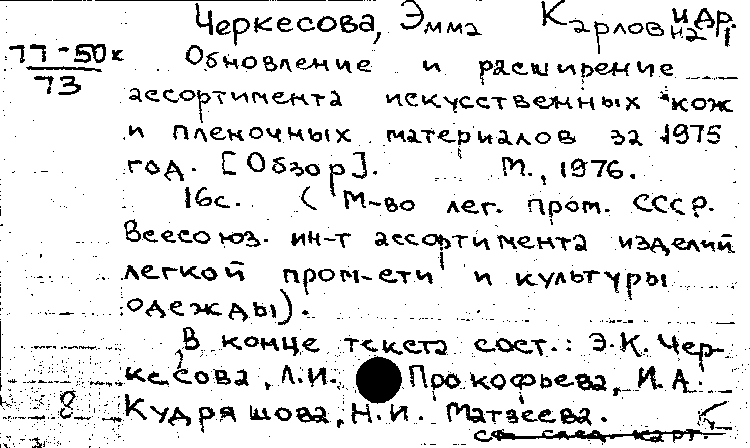 Черкесова, Эмма Карловна и др.
77-50к
73
Обновление и расширение
ассортимента искусственных кож
и пленочных материалов за 1975
год. [Обзор]. М., 1976.
16с. (М-во лег. пром. СССР.
Всесоюз. ин-т ассортимента изделий
легкой пром-сти и культуры
одежды).
В конце текста сост.: Э.К. Чер-
кесова, Л.И. Прокофьева, И.А.
8 Кудряшова, Н.И. Матвеева.
см след. карт.